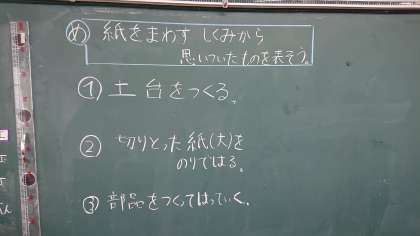 め 紙をまわす しくみから
思いついたものを表そう。
① 土台をつくる。
② 切りとった紙(大)を
のりではる。
③ 部品をつくてはっていく。